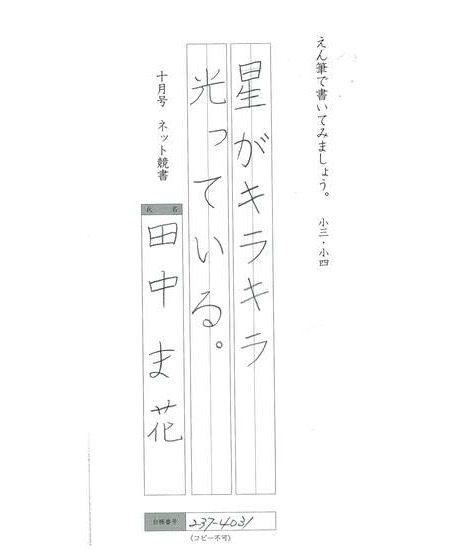 えん筆で書いてみましょう。 小三・小四
星がキラキラ
光っている。
十月号 ネット競書
氏 名
田中 ま花
台帳番号 237-4031
(コピー不可)